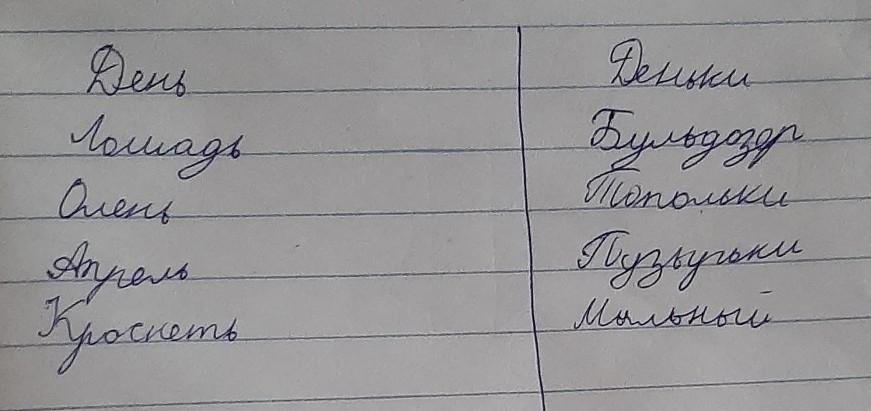 День Деньки
Лошадь Бульдозер
Олень Топольки
Апрель Пузырьки
Кроснеть Мыльный